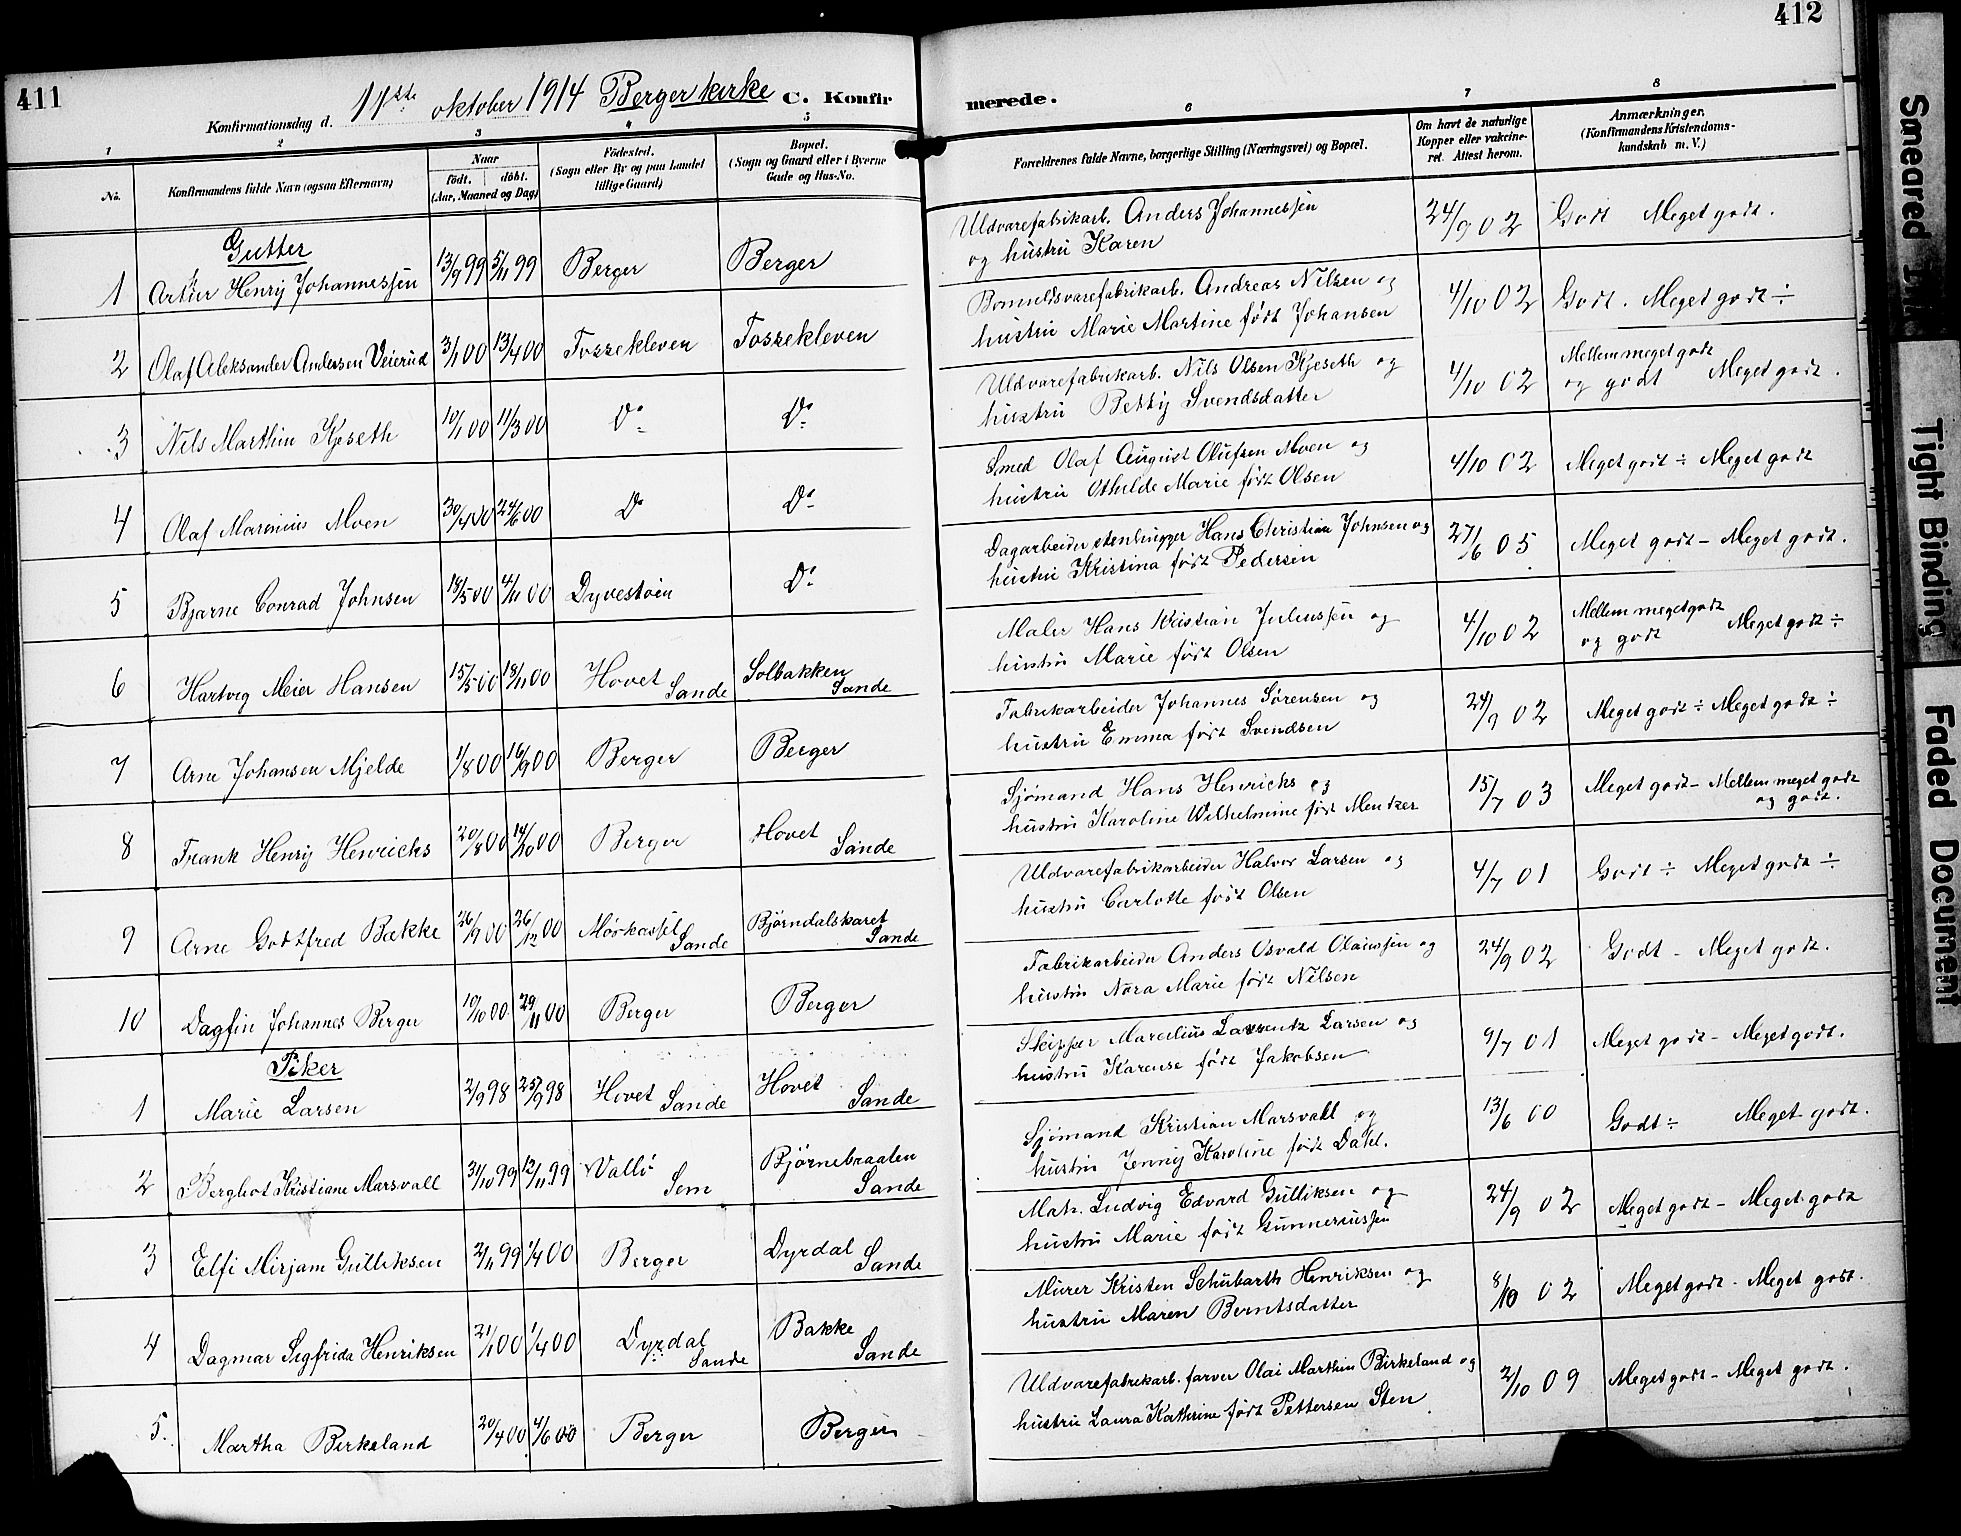 411
Konfirmationsdag d. 11te oktober 1914 Berger kirke C. Konfir
1 2 3 4 5
No. Konfirmandens fulde Navn (ogsaa Efternavn) Naar födt. döbt. (Aar, Maaned og Dag) Födested. (Sogn eller By og paa Landet tillige Gaard) Bopæl. (Sogn og Gaard eller i Byerne Gade og Hus-No.
Gutter
1 Artur Henry Johannessen 13/9 99 5/11 99 Berger Berger
2 Olaf Aleksander Andersen Veierud 3/1 00 13/4 00 Fossekleven Fossekleven
3 Nils Marthin Kjeseth 10/1 00 11/3 00 Do Do
4 Olaf Marinius Moen 30/4 00 24/6 00 Do Do
5 Bjarne Conrad Johnsen 18/5 00 4/11 00 Dyvestøen Do
6 Hartvig Meier Hansen 15/5 00 18/11 00 Hovet Sande Solbakken Sande
7 Arne Johansen Mjelde 1/8 00 16/9 00 Berger Berger
8 Frank Henry Henrichs 20/8 00 14/10 00 Berger Hovet Sande
9 Arne Godtfred Bakke 26/9 00 26/12 00 Mørkassel Sande Bjørndalskaret Sande
10 Dagfin Johannes Berger 10/10 00 29/11 00 Berger Berger
Piker
1 Marie Larsen 2/9 98 25/9 98 Hovet Sande Hovet Sande
2 Berghot Kristiane Marsvall 31/10 99 12/11 99 Vallö Sem Bjørnebraaten Sande
3 Elfi Mirjam Gulliksen 2/11 99 1/4 00 Berger Dyrdal Sande
4 Dagmar Sigfrida Henriksen 21/1 00 1/4 00 Dyrdal Sande Bakke Sande
5. Martha Birkeland 20/4 00 4/6 00 Berger Berger
412
merede.
6 7 8
Forældrenes fulde Navne, borgerlige Stilling (Næringsvei) og Bopæl. Om havt de naturlige Kopper eller vakcineret. Attest herom. Anmærkninger. (Konfirmandens Kristendomskundskab m. V.)
Uldvarefabrikarb. Anders Johannessen
og hustru Karen 24/9 02 Godt Meget godt.
Bomuldsvarefabrikarb. Andreas Nilsen og
hustru Marie Martine født Johansen 4/10 02 Godt. Meget godt ÷
Uldvarefabrikarb. Nils Olsen Kjeseth og
hustru Betty Svendsdatter 4/10 02 Mellem meget godt og godt Meget godt.
Smed Olaf August Olufsen Moen og
hustru Othilde Marie født Olsen 4/10 02 Meget godt ÷ Meget godt
Dagarbeider stenhugger Hans Christian Johnsen og
hustru Kristina født Pedersen 27/6 05 Meget godt - Meget godt.
Maler Hans Kristian Juliussen og
hustru Marie født Olsen 4/10 02 Mellem meget godt og godt Meget godt ÷
Fabrikarbeider Johannes Sørensen og
hustru Emma født Svendsen 24/9 02 Meget godt ÷ Meget godt ÷
Sjømand Hans Henrichs og
hustru Karoline Wilhelmine født Mentzer 15/7 03 Meget godt - Mellem meget godt og godt.
Uldvarefabrikarbeider Halvor Larsen og
hustru Carlotte født Olsen 4/7 01 Godt ÷ Meget godt ÷
Fabrikarbeider Anders Osvald Olaussen og
hustru Nora Marie født Nilsen 24/9 02 Godt - Meget godt.
Skipper Marcilius Laurentz Larsen og
hustru Karense født Jakobsen 9/7 01 Meget godt - Meget godt.
Sjømand Kristian Marsvall og
hustru Jenny Karoline født Dahl. 13/6 00 Godt ÷ Meget godt.
Mat. Ludvig Edvard Gulliksen og
hustru Marie født Gunneriussen 24/9 02 Meget godt - Meget godt
Murer Kristen Schubarth Henriksen og
hustru Maren Berntsdatter 8/10 02 Meget godt - Meget godt.
Uldvarefabrikarb. farver Olai Marthin Birkeland og
hustru Laura Kathrine født Pettersen Sten 2/10 09 Meget godt - Meget godt.
Smeared
Tight Binding
Faded Document